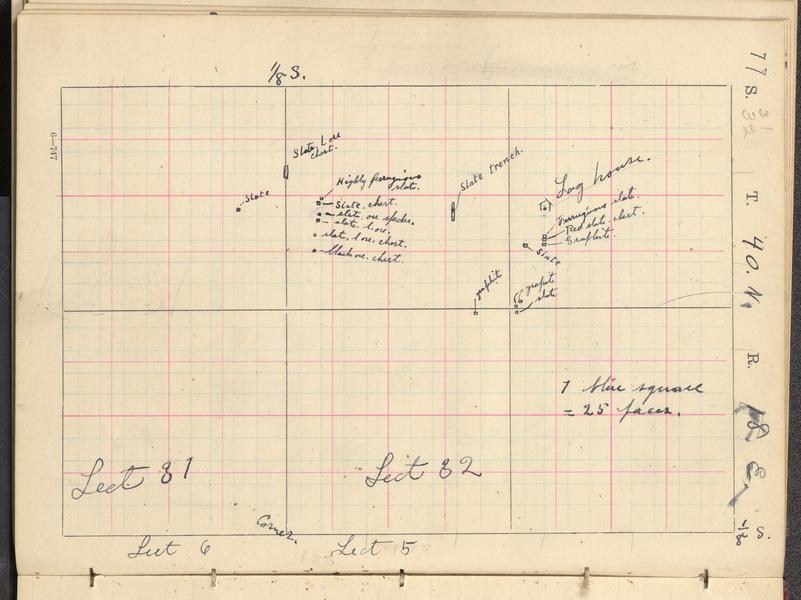 1/8 S.
6—717
Slate, L ore
chert.
Highly ferruginous
slate.
Slate, chert.
slate, ore specks.
slate, l. ore.
slate, l ore. chert.
black ore. chert.
Slate
Slate trench.
Log house.
Ferruginous slate.
Red slate. chert.
Graphite.
Slate
graphite
grapite
slate
1 blue square
= 25 paces.
Sect 31
Sect 32
Corner.
Sect 6
Sect 5
S. T. 40. N. R. 18 E.
1/8 S.